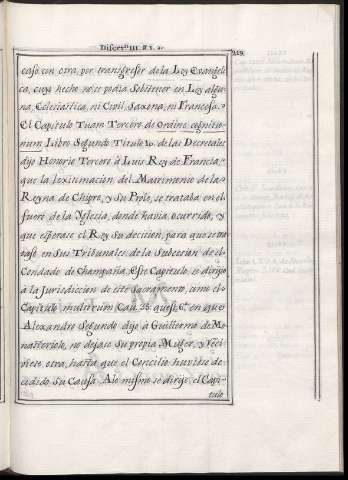 Disert.ⁿ III. § I. 
929.
caso con otra, por transgresor de la Ley Evangeli-
ca, cuyo hecho no se podia Sobstener en Ley algu-
na, Eclesiastica, ni Civil, Saxona, ni Francesa.
El Capitulo Tuam Tercero de Ordine cognitio-
num Libro Segundo Titulo 10. de las Decretales
dijo Honorio Tercero à Luis Rey de Francia,
que la lexitimacion del Matrimonio de la
Reyna de Chipre, y su Prole, se trataba en el
fuero de la Yglesia, donde havia ocurrido, y
que esperase el Rey Su decision, para que se tra-
tase en Sus Tribunales de la Subcesion de el
Condado de Champaña. Este Capitulo, se dirije
à la Jurisdiccion de este Sacramento, como el
Capitulo multorum Cau. 35. quest. 6.ª en que
Alexandro Segundo dijo à Guillermo de Mo-
nasteriolo, no dejase Su propia Muger, y reci-
viese otra, hasta que el Concilio huviese de-
cidido Su Causa. A lo mismo se dirije el Capi-
tulo